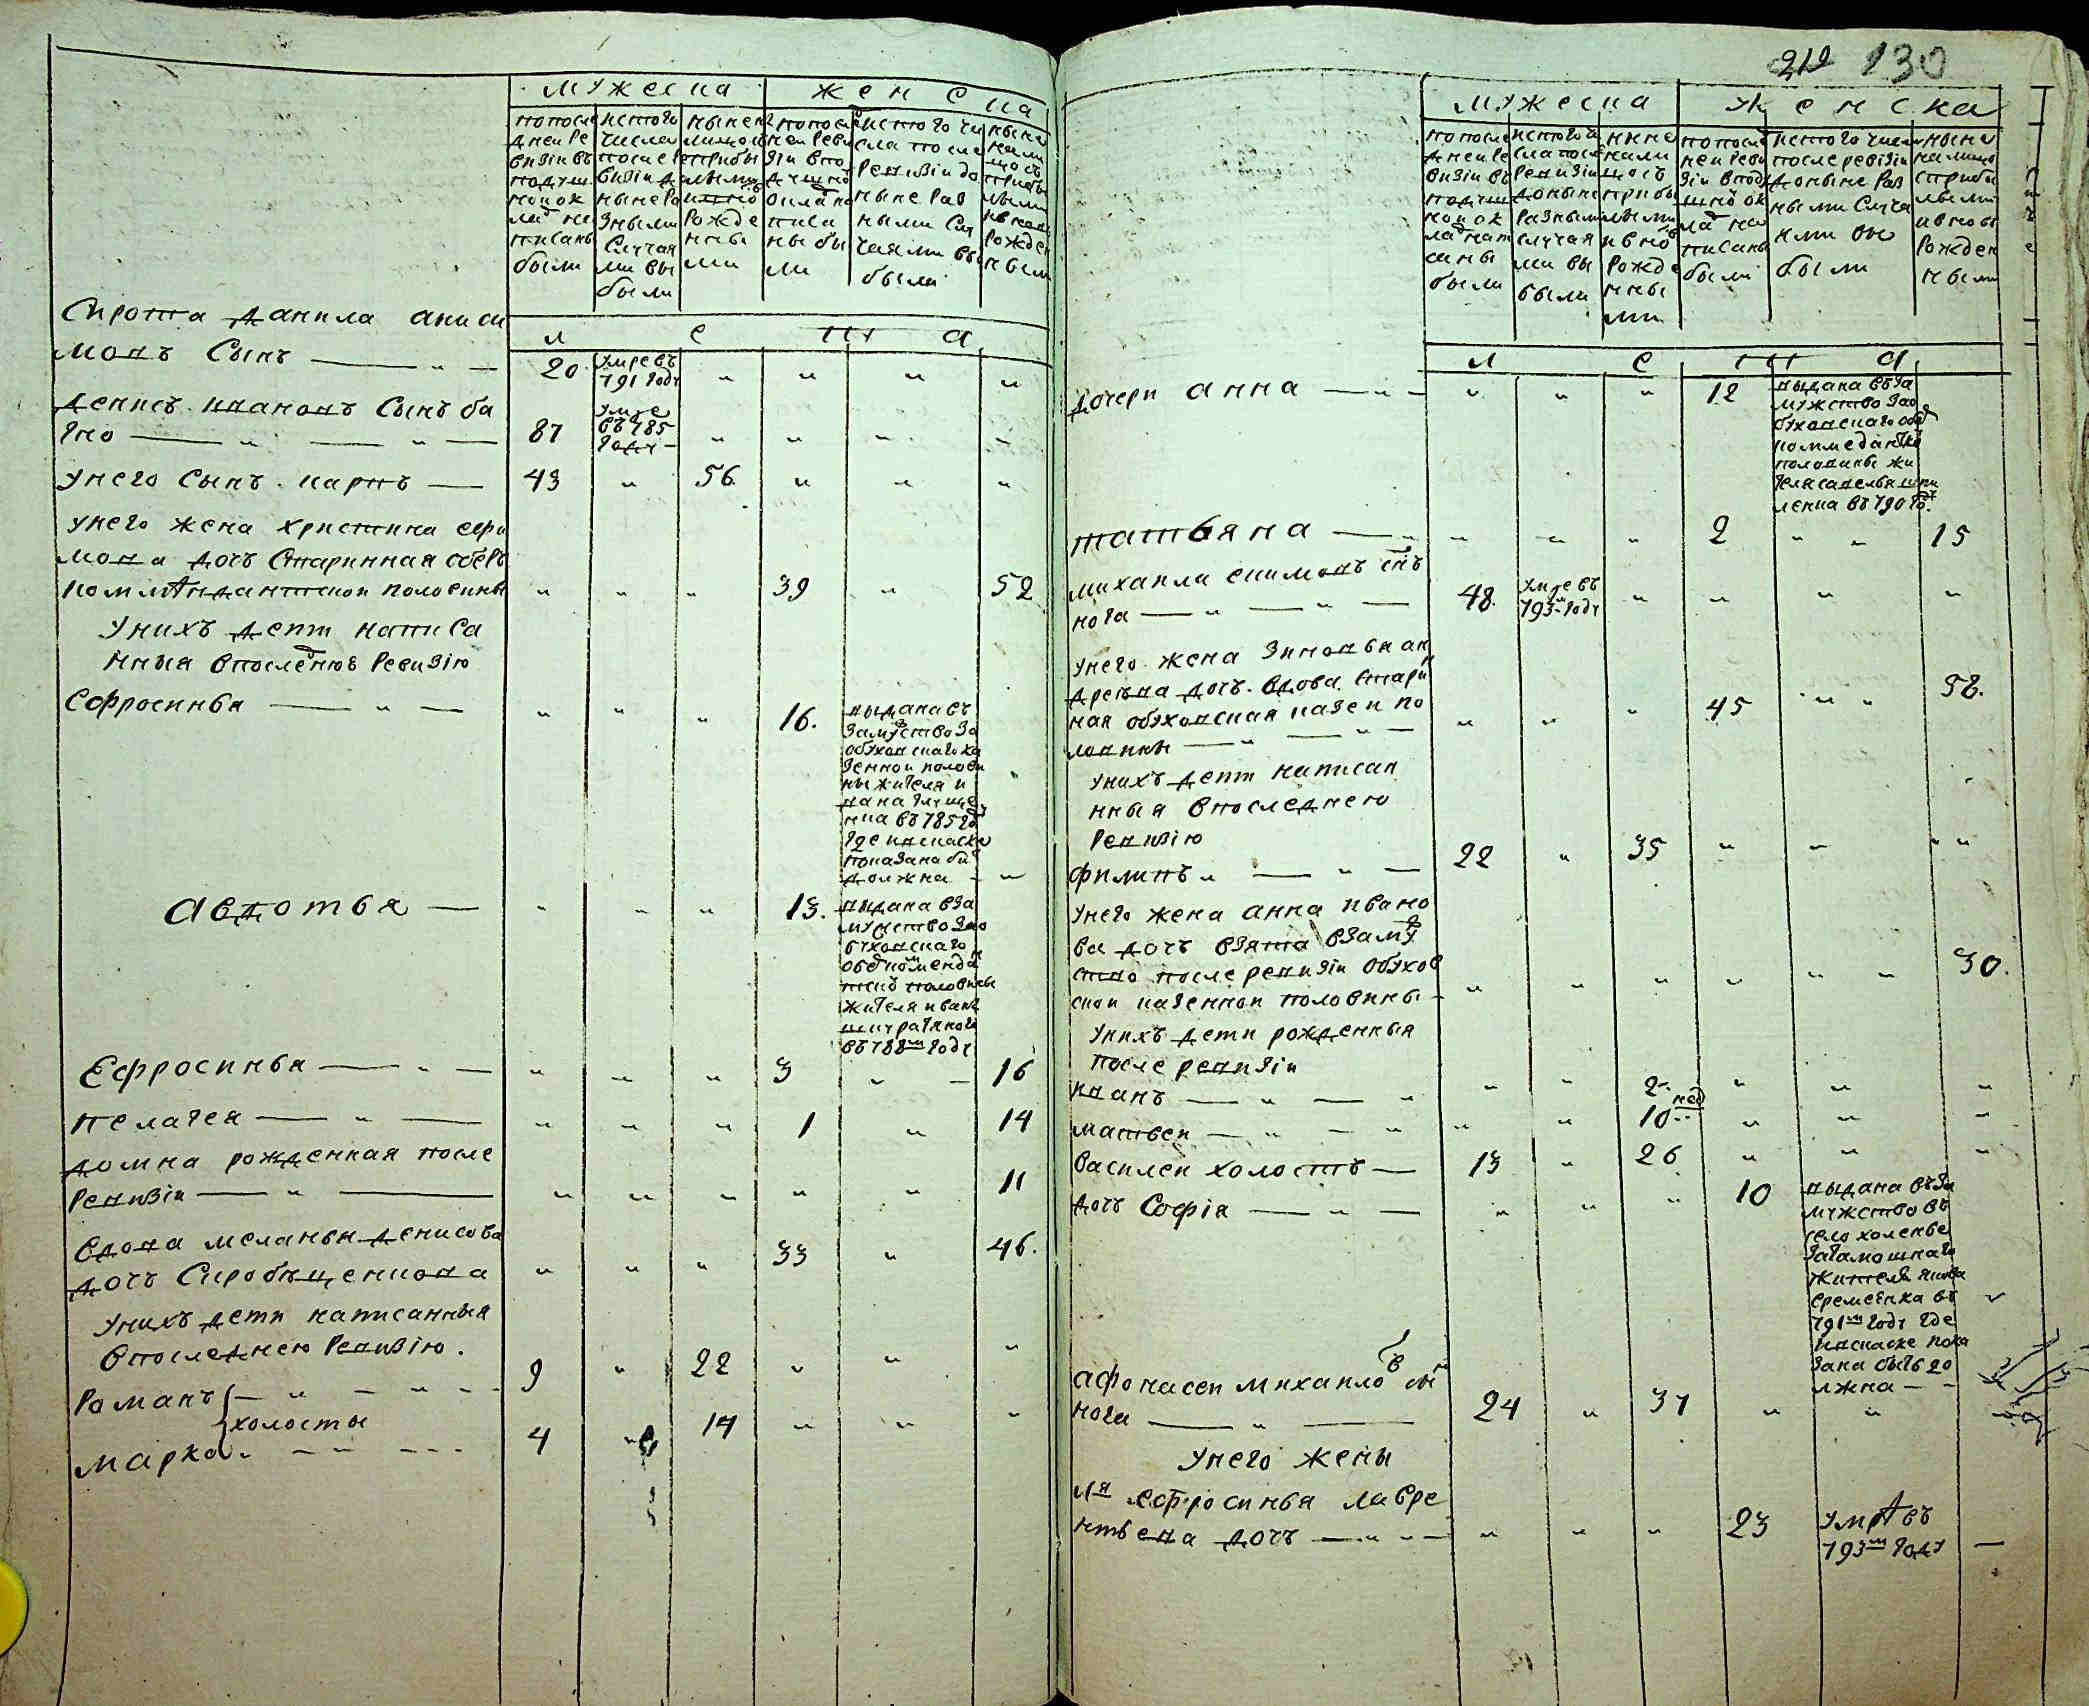 мужеска
женска
попосле
дней ре
визіи въ
подуш
ной ок
лад на
писаны
были
истого
числа
после ре
визіи д
ныне ра
зными
случая
ми вы
были
ныне
рожде
нны
ми
попосле
ней реви
зіи впо
душно
окла на
писа
ны бы
ли
истого чи
сла после
ревизіи до
ныне раз
ными слу
чаями вы
были
ныне
нали
рожден
ными
лета
Сирота данила аниси
мовъ Сынъ
20
умре въ
791 годъ
денисъ ивановъ Сынъ ба
87
умре
въ 785
году
унего Сынъ карпъ
43
56
унего жена христина ефи
мова дочь Старинная обер
коммандантской половины
39
52
унихъ дети написа
нныя впоследнюю ревизію
Ефросинья
16.
выдана въ
замуство за
обуховскаго ка
зенной полови
ны жителя и
вана глуще
нка въ 785 год
где ивсписке
показана быт
должна
Авдотья
13.
выдана вза
муство зао
буховскаго
обер коменда
тской половины
жителя ивана
въ 788м годе
Ефросинья
3
16
пелагея
1
14
домна рожденная после
ревизіи
11
вдова меланья денисова
дочь Скробыщенкова
33
46.
унихъ дети написанныя
впоследнею ревизію.
романъ
9
22
холосты
марко
4
17
219 130
мужеска
женска
попосле
дней ре
визіи въ
подуш
ной ок
лад нап
саны
были
истого чи
сла после
ревизіи
доныне
разными
случая
ми вы
были
ныне
нали
цость
прибы
лыми
ивно
рожде
нны
ми
попосле
ней реви
зіи впод
шной ок
лад на
писаны
были
истого числа
после ревізіи
доныне раз
ными случа
ями вы
были
ныне
налицо
сприбы
лыми
ивновь
рожден
ными
лета
дочери анна
12
выдана въ за
мужство зао
буховскаго обер
коммедантской
половины жи
ленка въ 790 год.
татьяна
2
15
михайла екимовъ снъ
нога
48.
умре въ
793м годе
унего жена зиновья ан
дреева дочь вдова Стари
ная обуховская казен по
ловины
45
58.
унихъ дети написан
ныя впоследнею
ревизію
филипъ
22
35
унего жена анна ивано
ва дочь взята взаму
ство после ревизіи обухов
ской казенной половины
30.
унихъ дети рожденныя
после ревизіи
иванъ
2
матвей
10 нед
василей холостъ
13
26
дочь Софія
10
выдана въ за
мужство въ
село холенье
затамошнаго
жителя якова
еременка въ
791м годе где
ивсписке пока
зана быть до
лжна
афонасей михайловъ сы
нога
24
37
унего жены
1я ефросинья лавре
нтьева дочь
23
умре въ
793м году